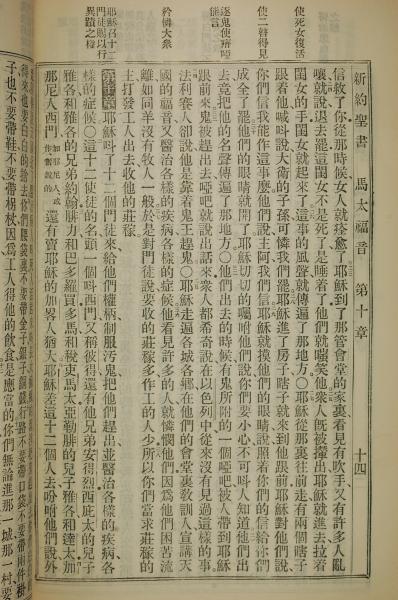 新約聖書 馬太福音 第十章 十四
使死女復活
使二瞽得見
逐鬼使瘖啞能言
矜憐大衆
耶穌召十二門徒賜以行異蹟之權
信救了你從那時候女人就痊愈了耶穌到了那管會堂的家裏看見有吹手又有許多人亂
嚷就說退去罷這閨女不是死了是睡着了他們就嗤笑他衆人旣被攆出耶穌就進去拉着
閨女的手閨女就起來了這事的風聲就傳遍了那地方○耶穌從那裏往前走有兩個瞎子
跟着他喊叫說大衛的子孫可憐我們罷耶穌進了房子瞎子就來到他跟前耶穌對他們說
你們信我能作這事麽他們說主阿我們信耶穌就摸他們的眼睛說照着你們的信給你們
成全了罷他們的眼睛就開了耶穌切切的囑咐他們說你們要小心不可呌人知道他們出
去竟把他的名聲傳遍了那地方○他們出去的時候有鬼所附的一個啞吧被人帶到耶穌
跟前來鬼被趕出去啞吧就說出話來衆人都希奇說在以色列中從來沒有見過這樣的事
法利賽人卻說他是靠着鬼王趕鬼○耶穌走遍各城各鄉在他們的會堂裏敎訓人宣講天
國的福音又醫治各樣的疾病各樣的症候他看見許多的人就憐憫他們因爲他們困苦流
離如同羊沒有牧人一般於是對門徒說要收的莊稼多作工的人少所以你們當求莊稼的
主打發工人出去收他的莊稼
第十章 耶穌呌了十二個門徒來給他們權柄制服汚鬼把他們趕出並醫治各樣的疾病各
樣的症候○這十二使徒的名頭一個呌西門又稱彼得還有他兄弟安得烈西庇太的兒子
雅各和雅各的兄弟約翰腓力和巴多羅買多馬和稅吏馬太亞勒腓的兒子雅各和達太加
那尼人西門還有賣耶穌的加畧人猶大耶穌差這十二個人去吩咐他們說外
得來也要白白的給去你們腰袋裏不要帶金子銀子銅錢行路不要帶口袋不要帶兩件褂
子也不要帶鞋不要帶柺杖因爲工人得他的飮食是應當的你們無論進那一城那一村要